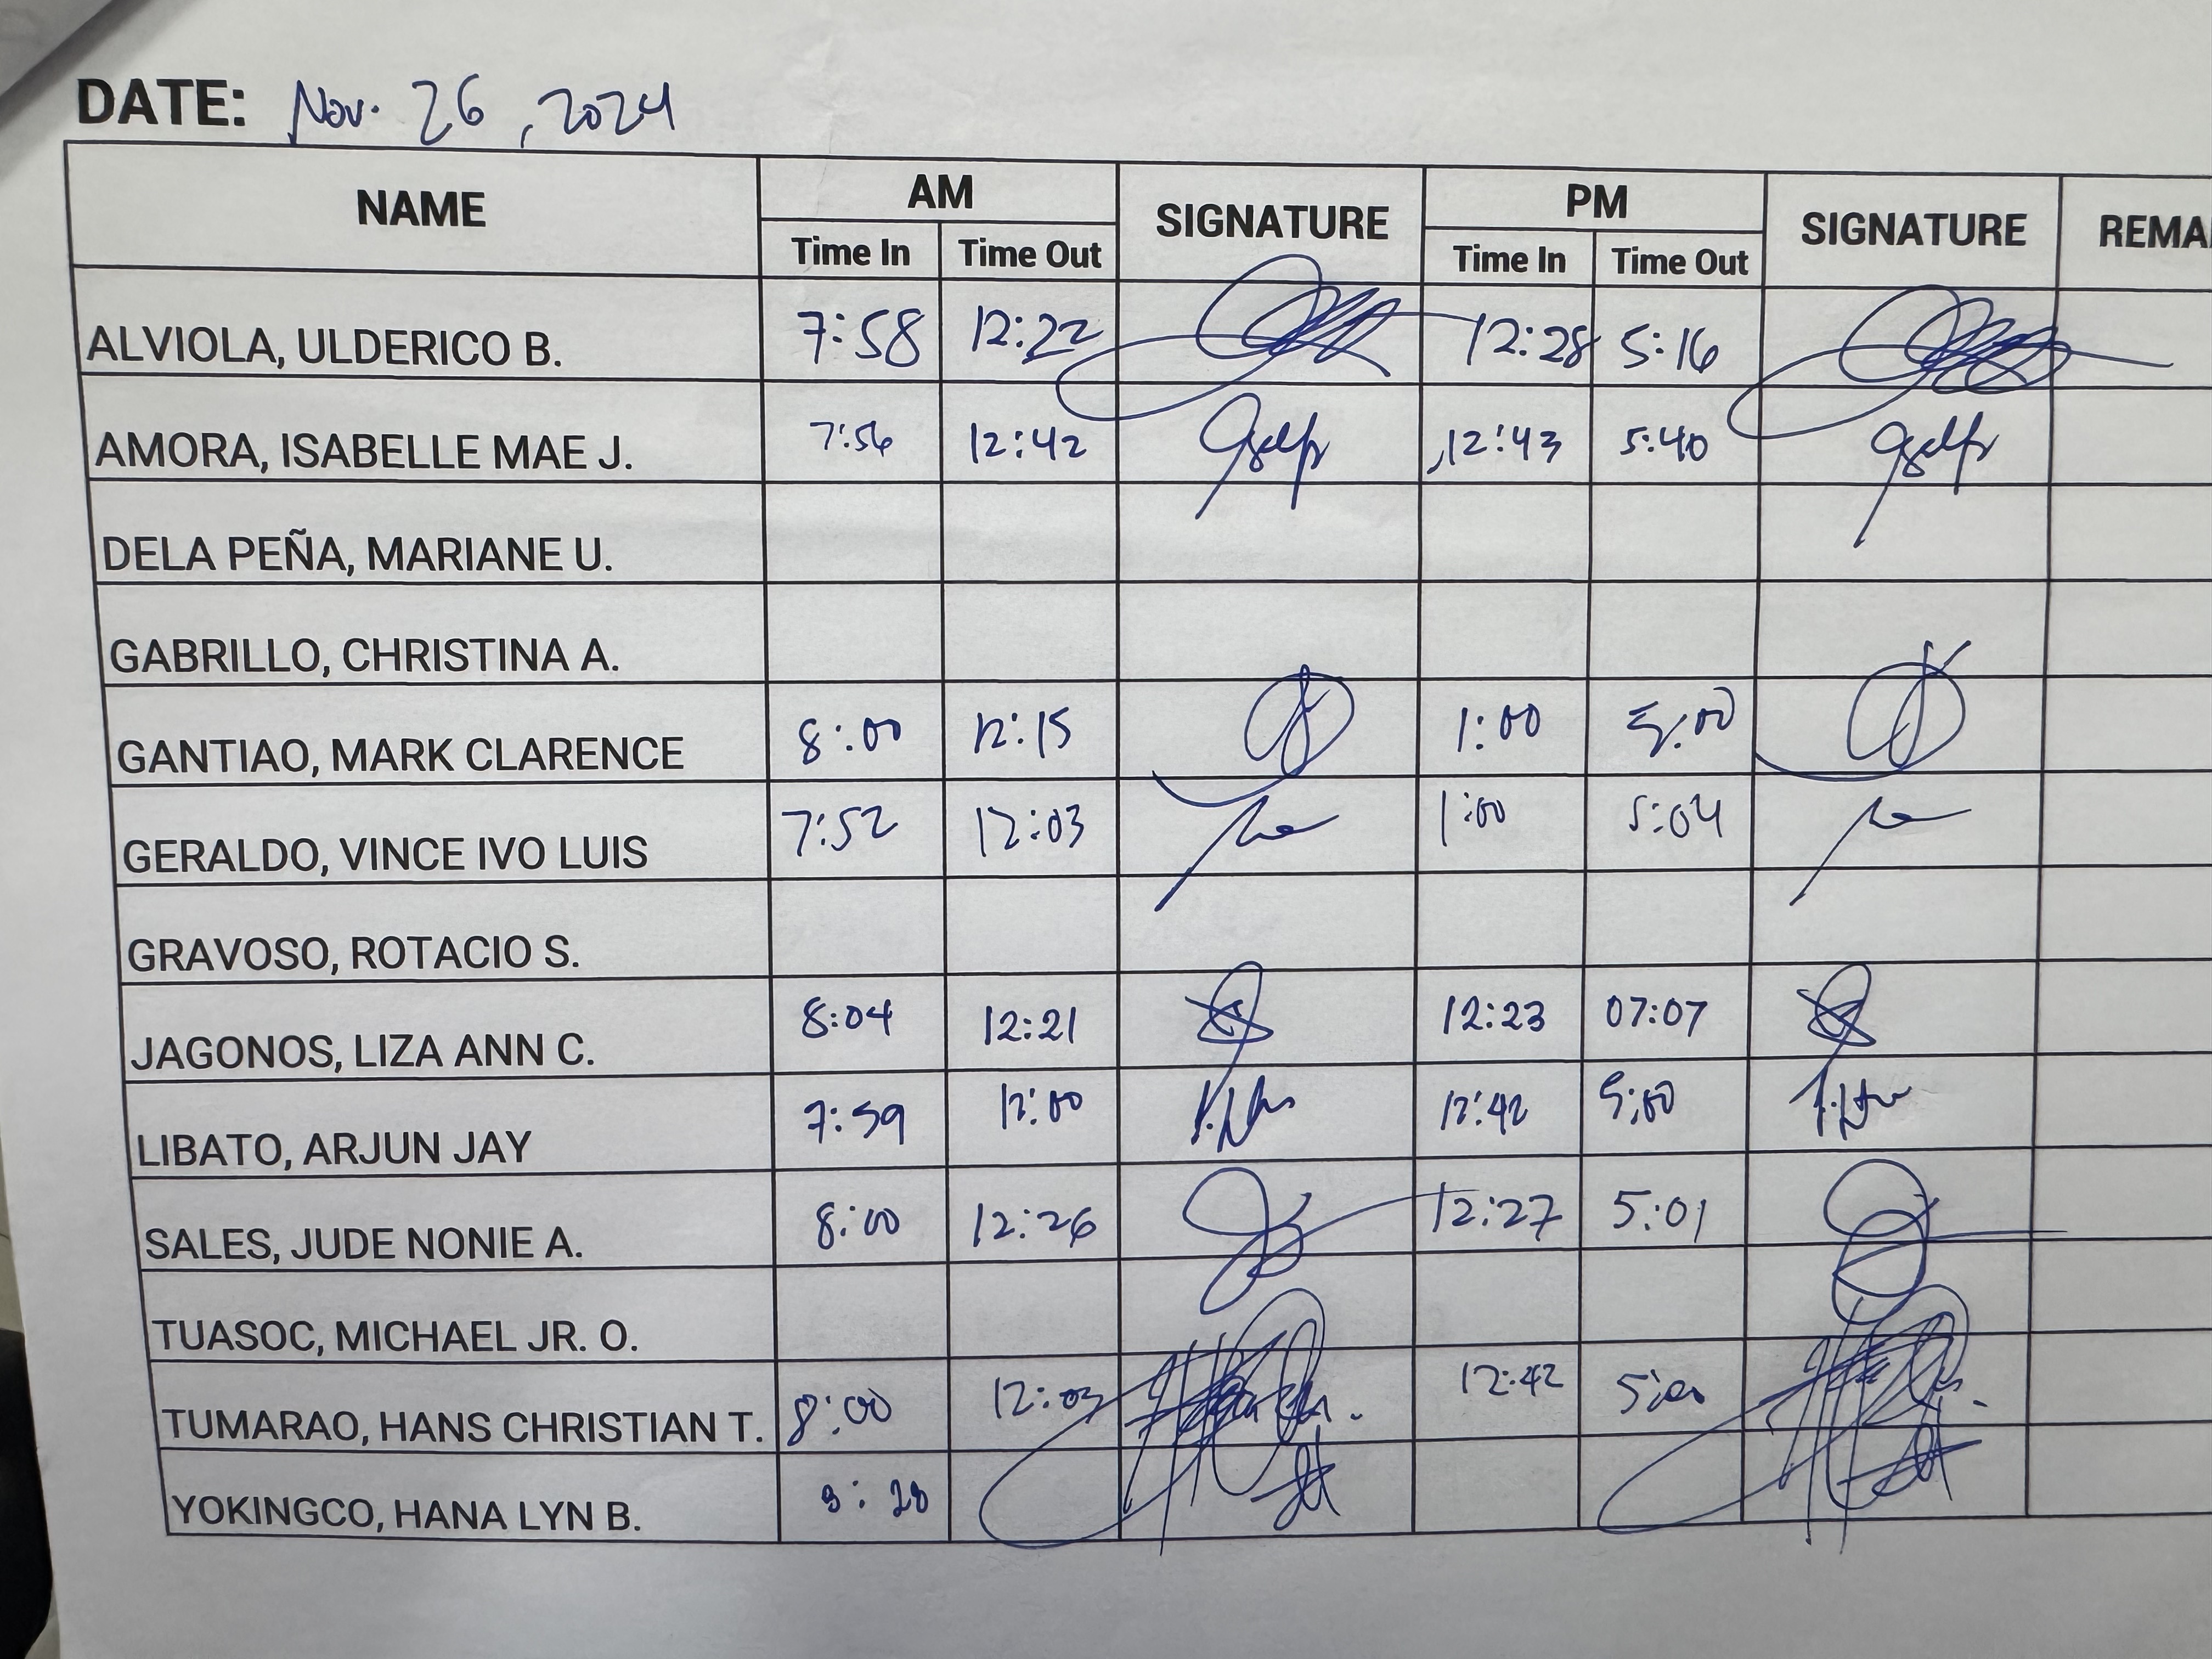 DATE: Nov. 26, 2024
NAME AM SIGNATURE PM SIGNATURE REMA
Time In Time Out Time In Time Out
ALVIOLA, ULDERICO B. 7:58 12:22 12:28 5:16
AMORA, ISABELLE MAE J. 7:56 12:42 12:43 5:40
DELA PEÑA, MARIANE U.
GABRILLO, CHRISTINA A.
GANTIAO, MARK CLARENCE 8:00 12:15 1:00 5:00
GERALDO, VINCE IVO LUIS 7:52 12:03 1:00 5:04
GRAVOSO, ROTACIO S.
JAGONOS, LIZA ANN C. 8:04 12:21 12:23 07:07
LIBATO, ARJUN JAY 7:59 12:00 12:42 5:00
SALES, JUDE NONIE A. 8:00 12:26 12:27 5:01
TUASOC, MICHAEL JR. O.
TUMARAO, HANS CHRISTIAN T. 8:00 12:03 12:42 5:00
YOKINGCO, HANA LYN B.